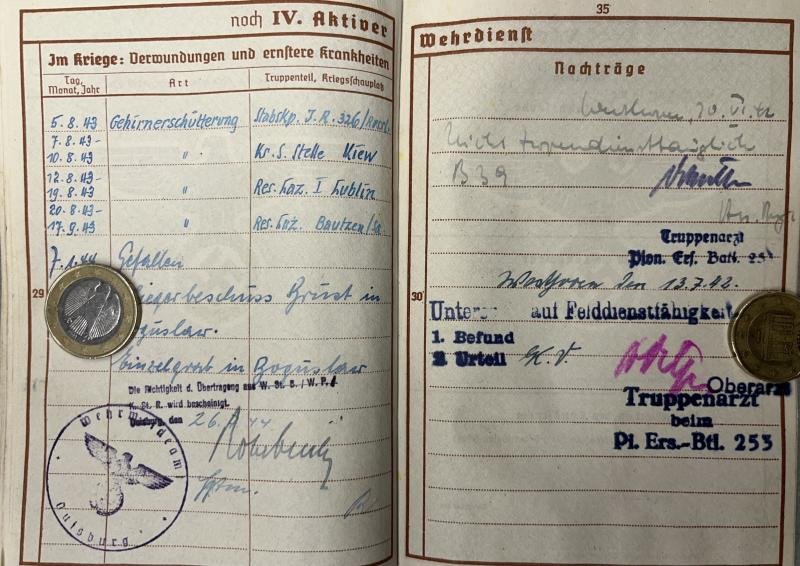 noch IV. Aktiver
Im Kriege: Verwundungen und ernstere Krankheiten
Tag, Monat, Jahr
Art
Truppenteil, Kriegsschauplatz
5.8.43 Gehirnerschütterung Stabskp. J.R. 326/
7.8.43-
10.8.43 " Kr. S. Stelle Kiew
12.8.43-
19.8.43 " Res. Laz. I Lublin
20.8.43-
17.9.43 " Res. Laz. Bautzen/Sa.
7.1.44 Gefallen
29
Brust in
Boguslaw.
Einzelgrab in Boguslaw
Die Richtigkeit d. Übertragung aus W. St. B. / W. P.
K. St. R. wird bescheinigt.
Duisburg, den 26. 44
Hptm.
Wehrmeldeamt
Duisburg
35
Wehrdienst
Nachträge
Westhoven,
Nicht
B 39
Truppenarzt
Pion. Ers. Batl. 253
30
Westhoven den 13.7.42.
Unters auf Felddienstfähigkeit
1. Befund
2. Urteil K.V.
Oberarzt
Truppenarzt
beim
Pi. Ers.-Btl. 253